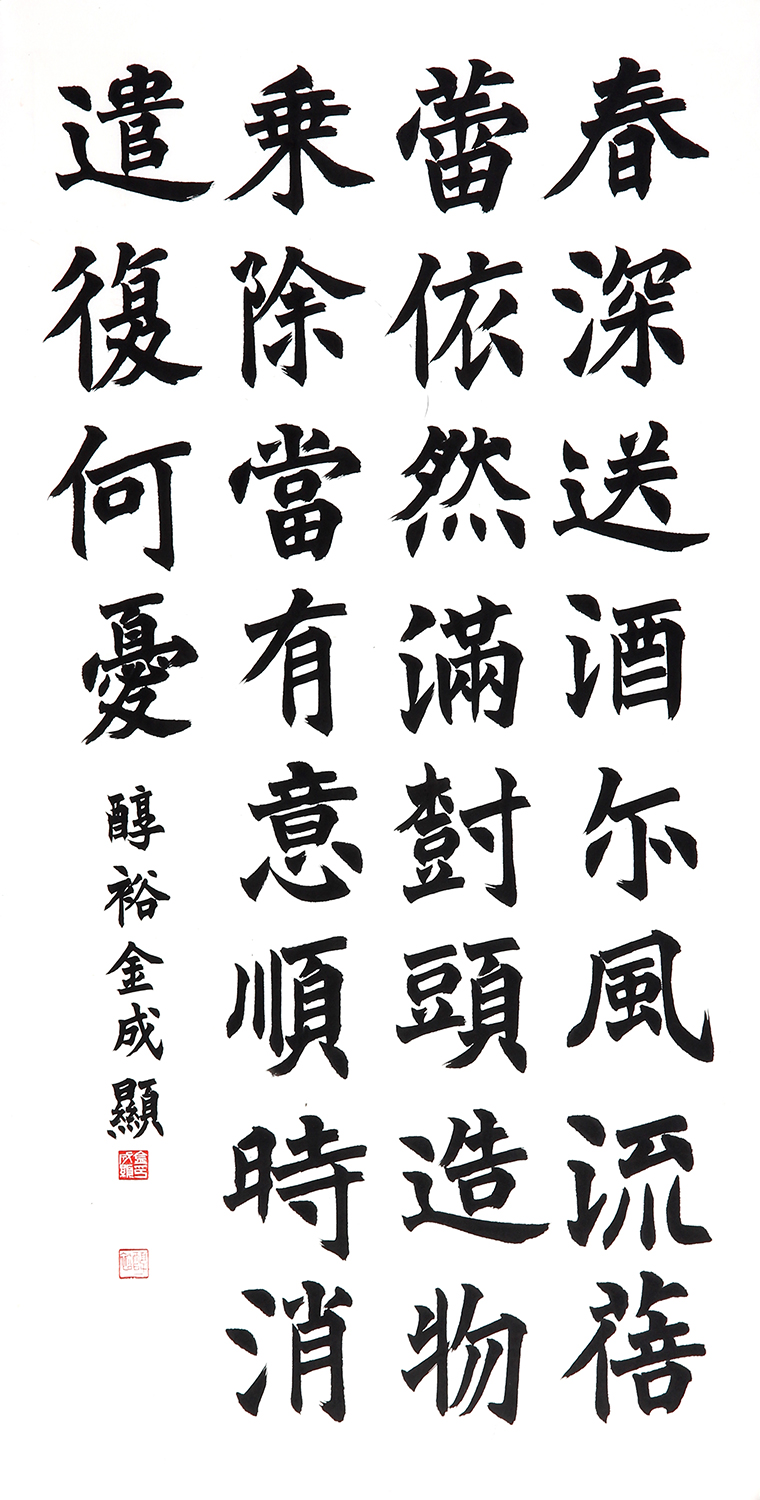 春深送酒尓風流蓓
蕾依然滿樹頭造物
乗除當有意順時消
遣復何憂
醇裕金成顯